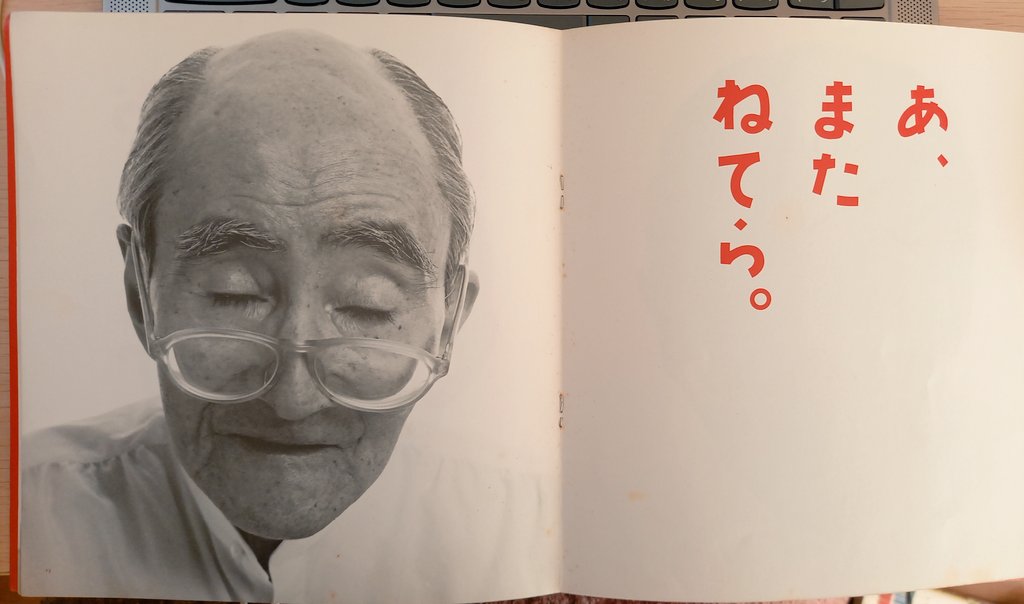 あ、
また
ねてら。